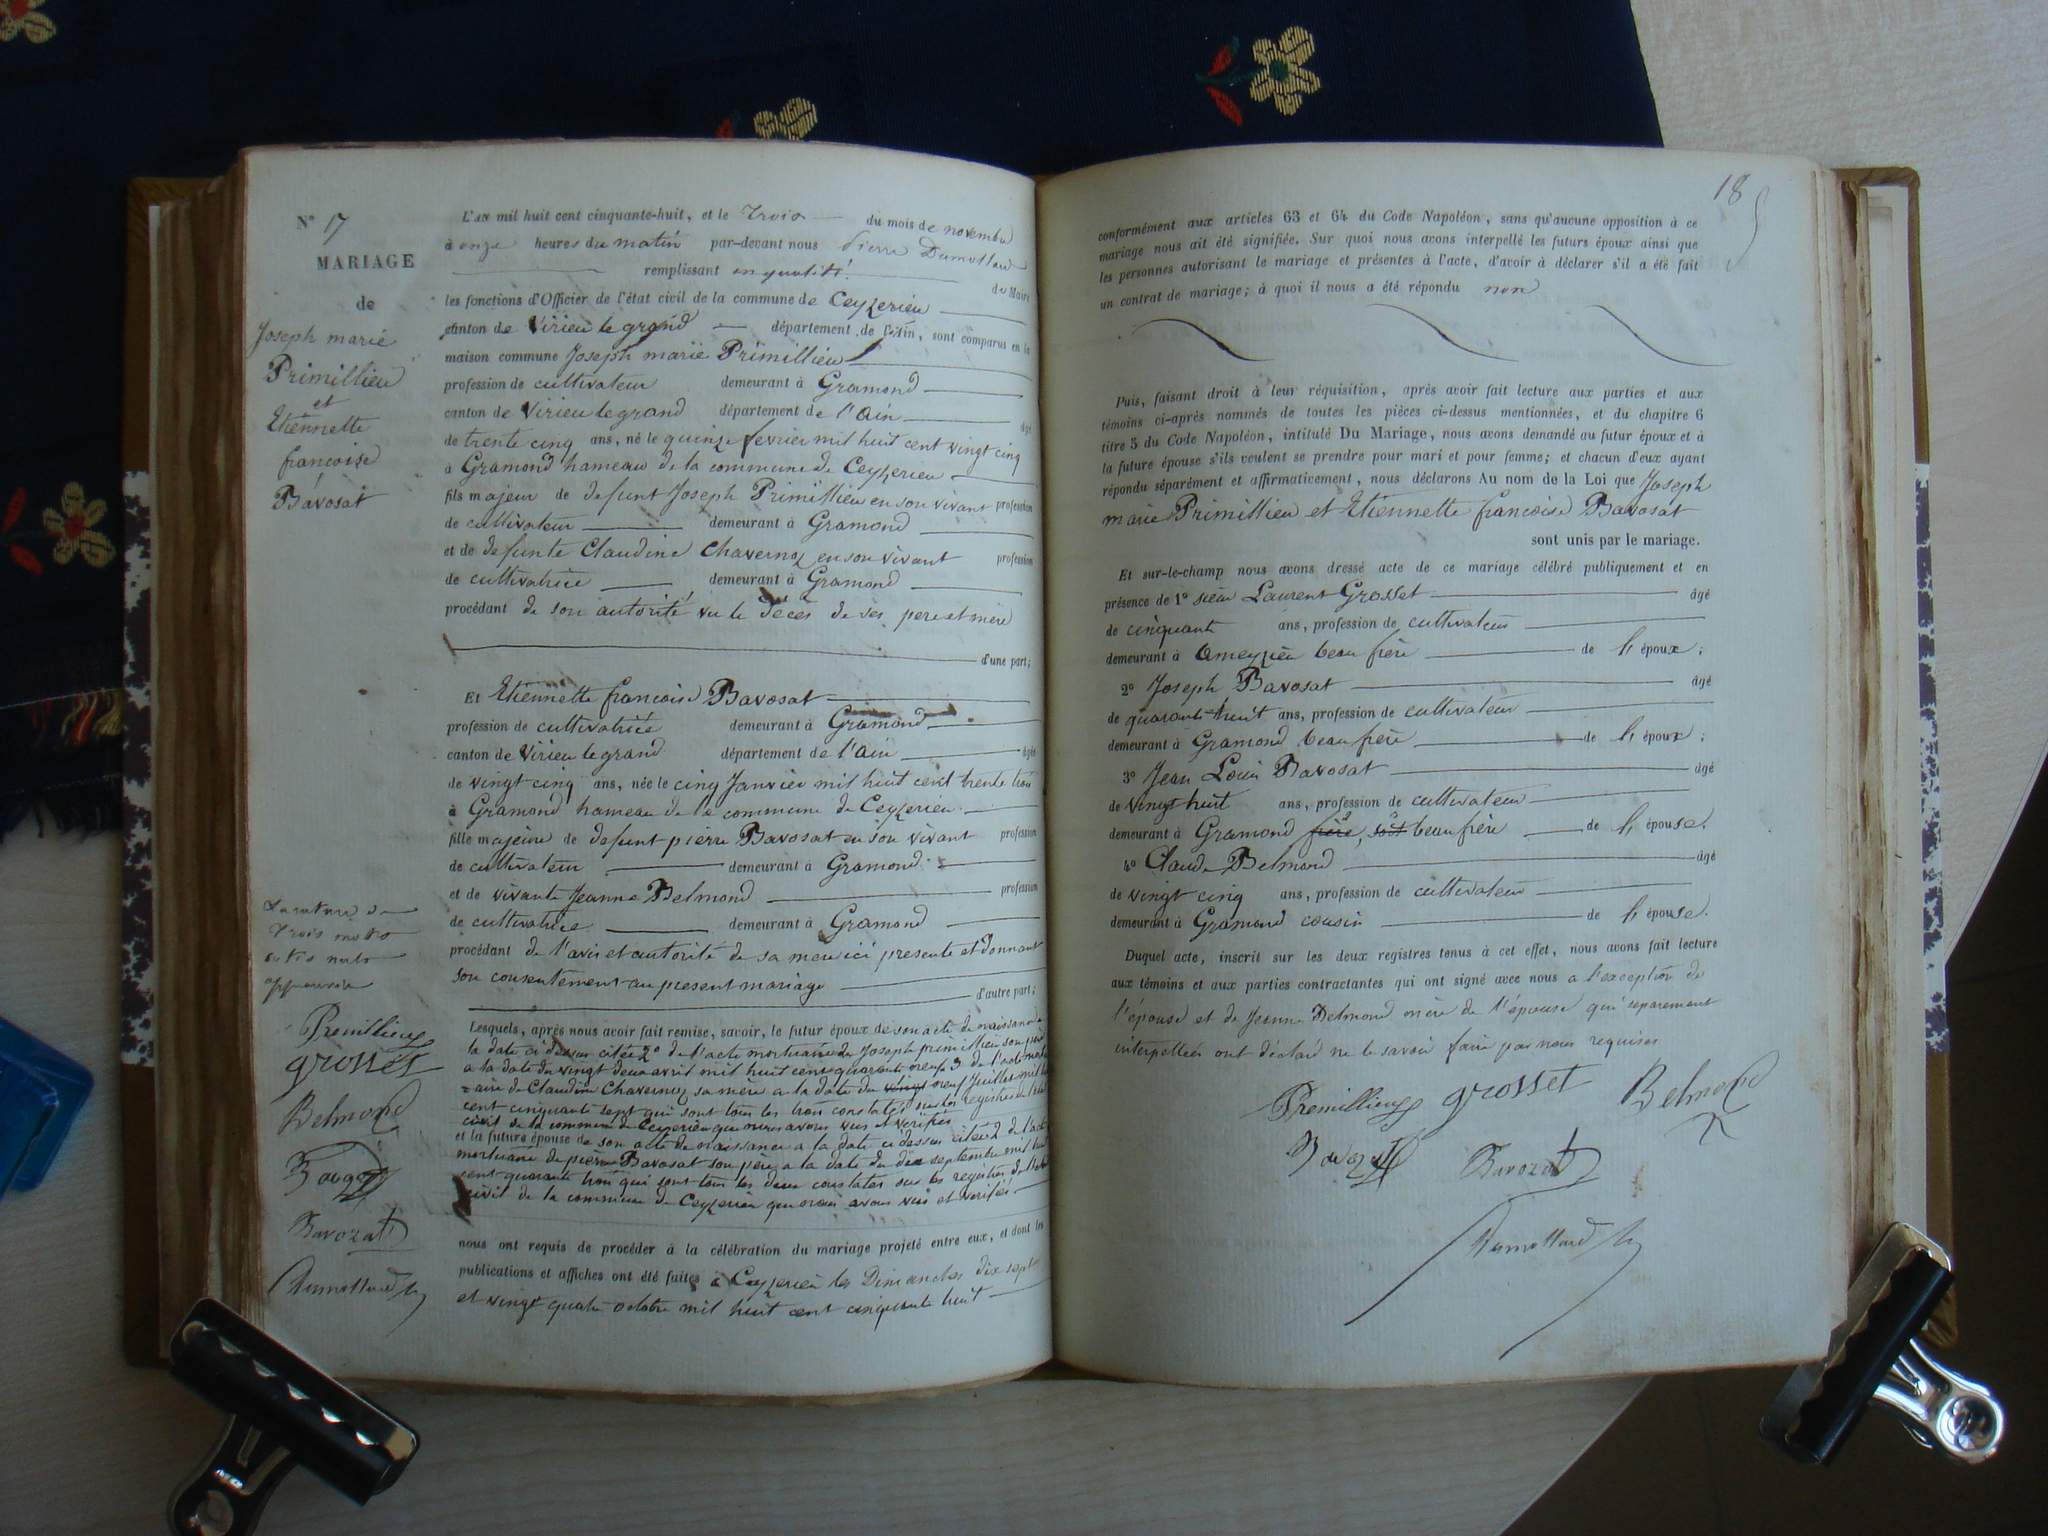 N° 17
MARIAGE
de
Joseph marie
Primillieu
et
Etiennette
francoise
Bavosat
La rature de
trois mots
approuvée
Premillieux
grosset
Belmond
Bavozat
Dumollard
L'AN mil huit cent cinquante-huit, et le trois du mois de novembre
à onze heures du matin par-devant nous Pierre Dumollard
remplissant en qualité du Maire
les fonctions d'Officier de l'état civil de la commune de Ceyzerieu
canton de Virieu le grand département de l'Ain, sont comparus en la
maison commune Joseph marie Primillieu
profession de cultivateur demeurant à Gramond
canton de Virieu le grand département de l'ain âgé
de trente cinq ans, né le quinze fevrier mil huit cent vingt cinq
à Gramond hameau de la commune de Ceyzerieu
fils majeur de defunt Joseph Primillieu en son vivant profession
de cultivateur demeurant à Gramond
et de defunte Claudine Chavernoz en son vivant profession
de cultivatrice demeurant à Gramond
procédant de son autorité vu le décès de ses pere et mere
d'une part;
Et Etiennette francoise Bavosat
profession de cultivatrice demeurant à Gramond
canton de Virieu le grand département de l'ain âgée
de vingt cinq ans, née le cinq Janvier mil huit cent trente trois
à Gramond hameau de la commune de Ceyzerieu
fille majeure de defunt pierre Bavosat en son vivant profession
de cultivateur demeurant à Gramond
et de vivante Jeanne Belmond profession
de cultivatrice demeurant à Gramond
procédant de l'avis et autorité de sa mere ici presente et donnant
son consentement au present mariage
d'autre part;
Lesquels, après nous avoir fait remise, savoir, le futur époux de son acte de naissance a
la date ci dessus citée 2° de l'acte mortuaire de Joseph primillieu son père
a la date du vingt deux avril mil huit cent quarante neuf 3 de l'acte mortu
=aire de Claudine Chavernoz sa mère a la date du vingt neuf Juillet mil huit
cent cinquante sept qui sont tous les trois constatés sur les registres de l'état
civil de la commune de Ceyzerieu que nous avons vus et verifiés
et la future épouse de son acte de naissance a la date ci dessus citée 2 de l'acte
mortuaire de pierre Bavosat son père a la date du dix septembre mil huit
cent quarante trois qui sont tous les deux constatés sur les registres de l'état
civil de la commune de Ceyzerieu que nous avons vus et verifiés
nous ont requis de procéder à la célébration du mariage projeté entre eux, et dont les
publications et affiches ont été faites à Ceyzerieu les Dimanches dix sept
et vingt quatre octobre mil huit cent cinquante huit
18
conformément aux articles 63 et 64 du Code Napoléon, sans qu'aucune opposition à ce
mariage nous ait été signifiée. Sur quoi nous avons interpellé les futurs époux ainsi que
les personnes autorisant le mariage et présentes à l'acte, d'avoir à déclarer s'il a été fait
un contrat de mariage; à quoi il nous a été répondu non
Puis, faisant droit à leur réquisition, après avoir fait lecture aux parties et aux
témoins ci-après nommés de toutes les pièces ci-dessus mentionnées, et du chapitre 6
titre 5 du Code Napoléon, intitulé Du Mariage, nous avons demandé au futur époux et à
la future épouse s'ils veulent se prendre pour mari et pour femme; et chacun d'eux ayant
répondu séparément et affirmativement, nous déclarons Au nom de la Loi que Joseph
marie Primillieu et Etiennette francoise Bavosat
sont unis par le mariage.
Et sur-le-champ nous avons dressé acte de ce mariage célébré publiquement et en
présence de 1° sieur Laurent Grosset âgé
de cinquante ans, profession de cultivateur
demeurant à Ameyzieu beau frère de l'époux;
2° Joseph Bavosat âgé
de quarante-huit ans, profession de cultivateur
demeurant à Gramond beau frère de l'époux;
3° Jean Louis Bavosat âgé
de vingt huit ans, profession de cultivateur
demeurant à Gramond frère, beau frère de l'épouse.
4° Claude Belmond âgé
de vingt cinq ans, profession de cultivateur
demeurant à Gramond cousin de l'épouse.
Duquel acte, inscrit sur les deux registres tenus à cet effet, nous avons fait lecture
aux témoins et aux parties contractantes qui ont signé avec nous a l'exception de
l'épouse et de Jeanne Belmond mère de l'épouse qui separement
interpellées ont déclaré ne le savoir faire par nous requises
Premillieux grosset Belmond
Bavozat Bavozat
Dumollard